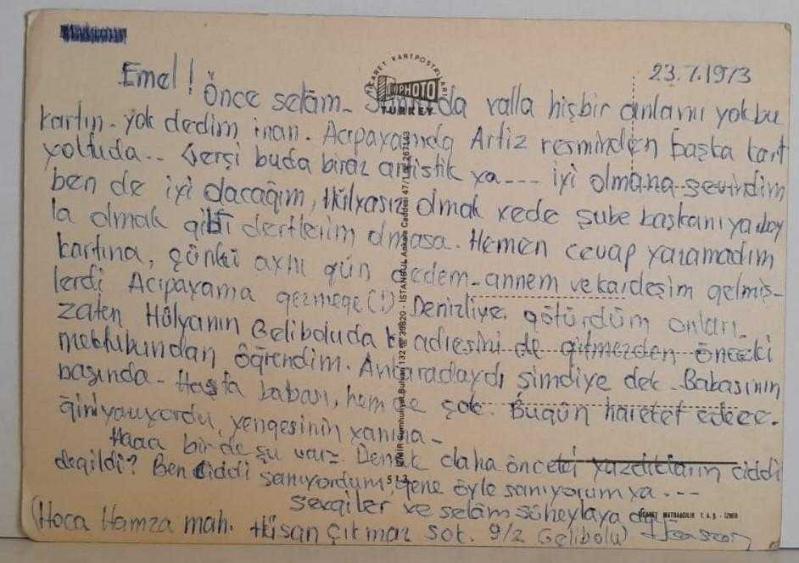 23.7.1973
Emel! Önce selâm- da valla hişbir anlamı yok bu
kartın- yok dedim inan. Acıpayamda Artiz resminden başka kart
yoktuda.. Gerşi buda biraz artistik ya--- iyi olmana sevindim
ben de iyi olacağım, olmak şube başkanıya
la olmak gibi dertlerim olmasa. Hemen cevap yazamadım
kartına, çünkü aynı gün dedem-annem ve kardeşim gelmiş-
lerdi Acıpayama gezmeğe(!) Denizliye götürdüm onları.
zaten Hülyanın Geliboluda adresini de gitmezden önceki
mektubundan öğrendim. Ankaradaydı şimdiye dek. Babasının
başında- Hasta babası, hem de çok. Bugün hareket edece-
ğini yazıyordu, yengesinin yanına-
Haaa bir de şu var: Demek daha önceki yazdıkların ciddi
değildi? Ben ciddi sanıyordum, gene öyle sanıyorum ya ---
Sevgiler ve selâm süheylaya
(Hoca Hamza mah. Çıkmaz Sok. 9/2 Gelibolu)
TİCARET KARTPOSTALLARI
PHOTO
TURKEY
İSTANBUL Ankara Caddesi 47/
İZMİR Cumhuriyet Bulvarı 132
TİCARET MATBAACILIK T.A.Ş. - İZMİR